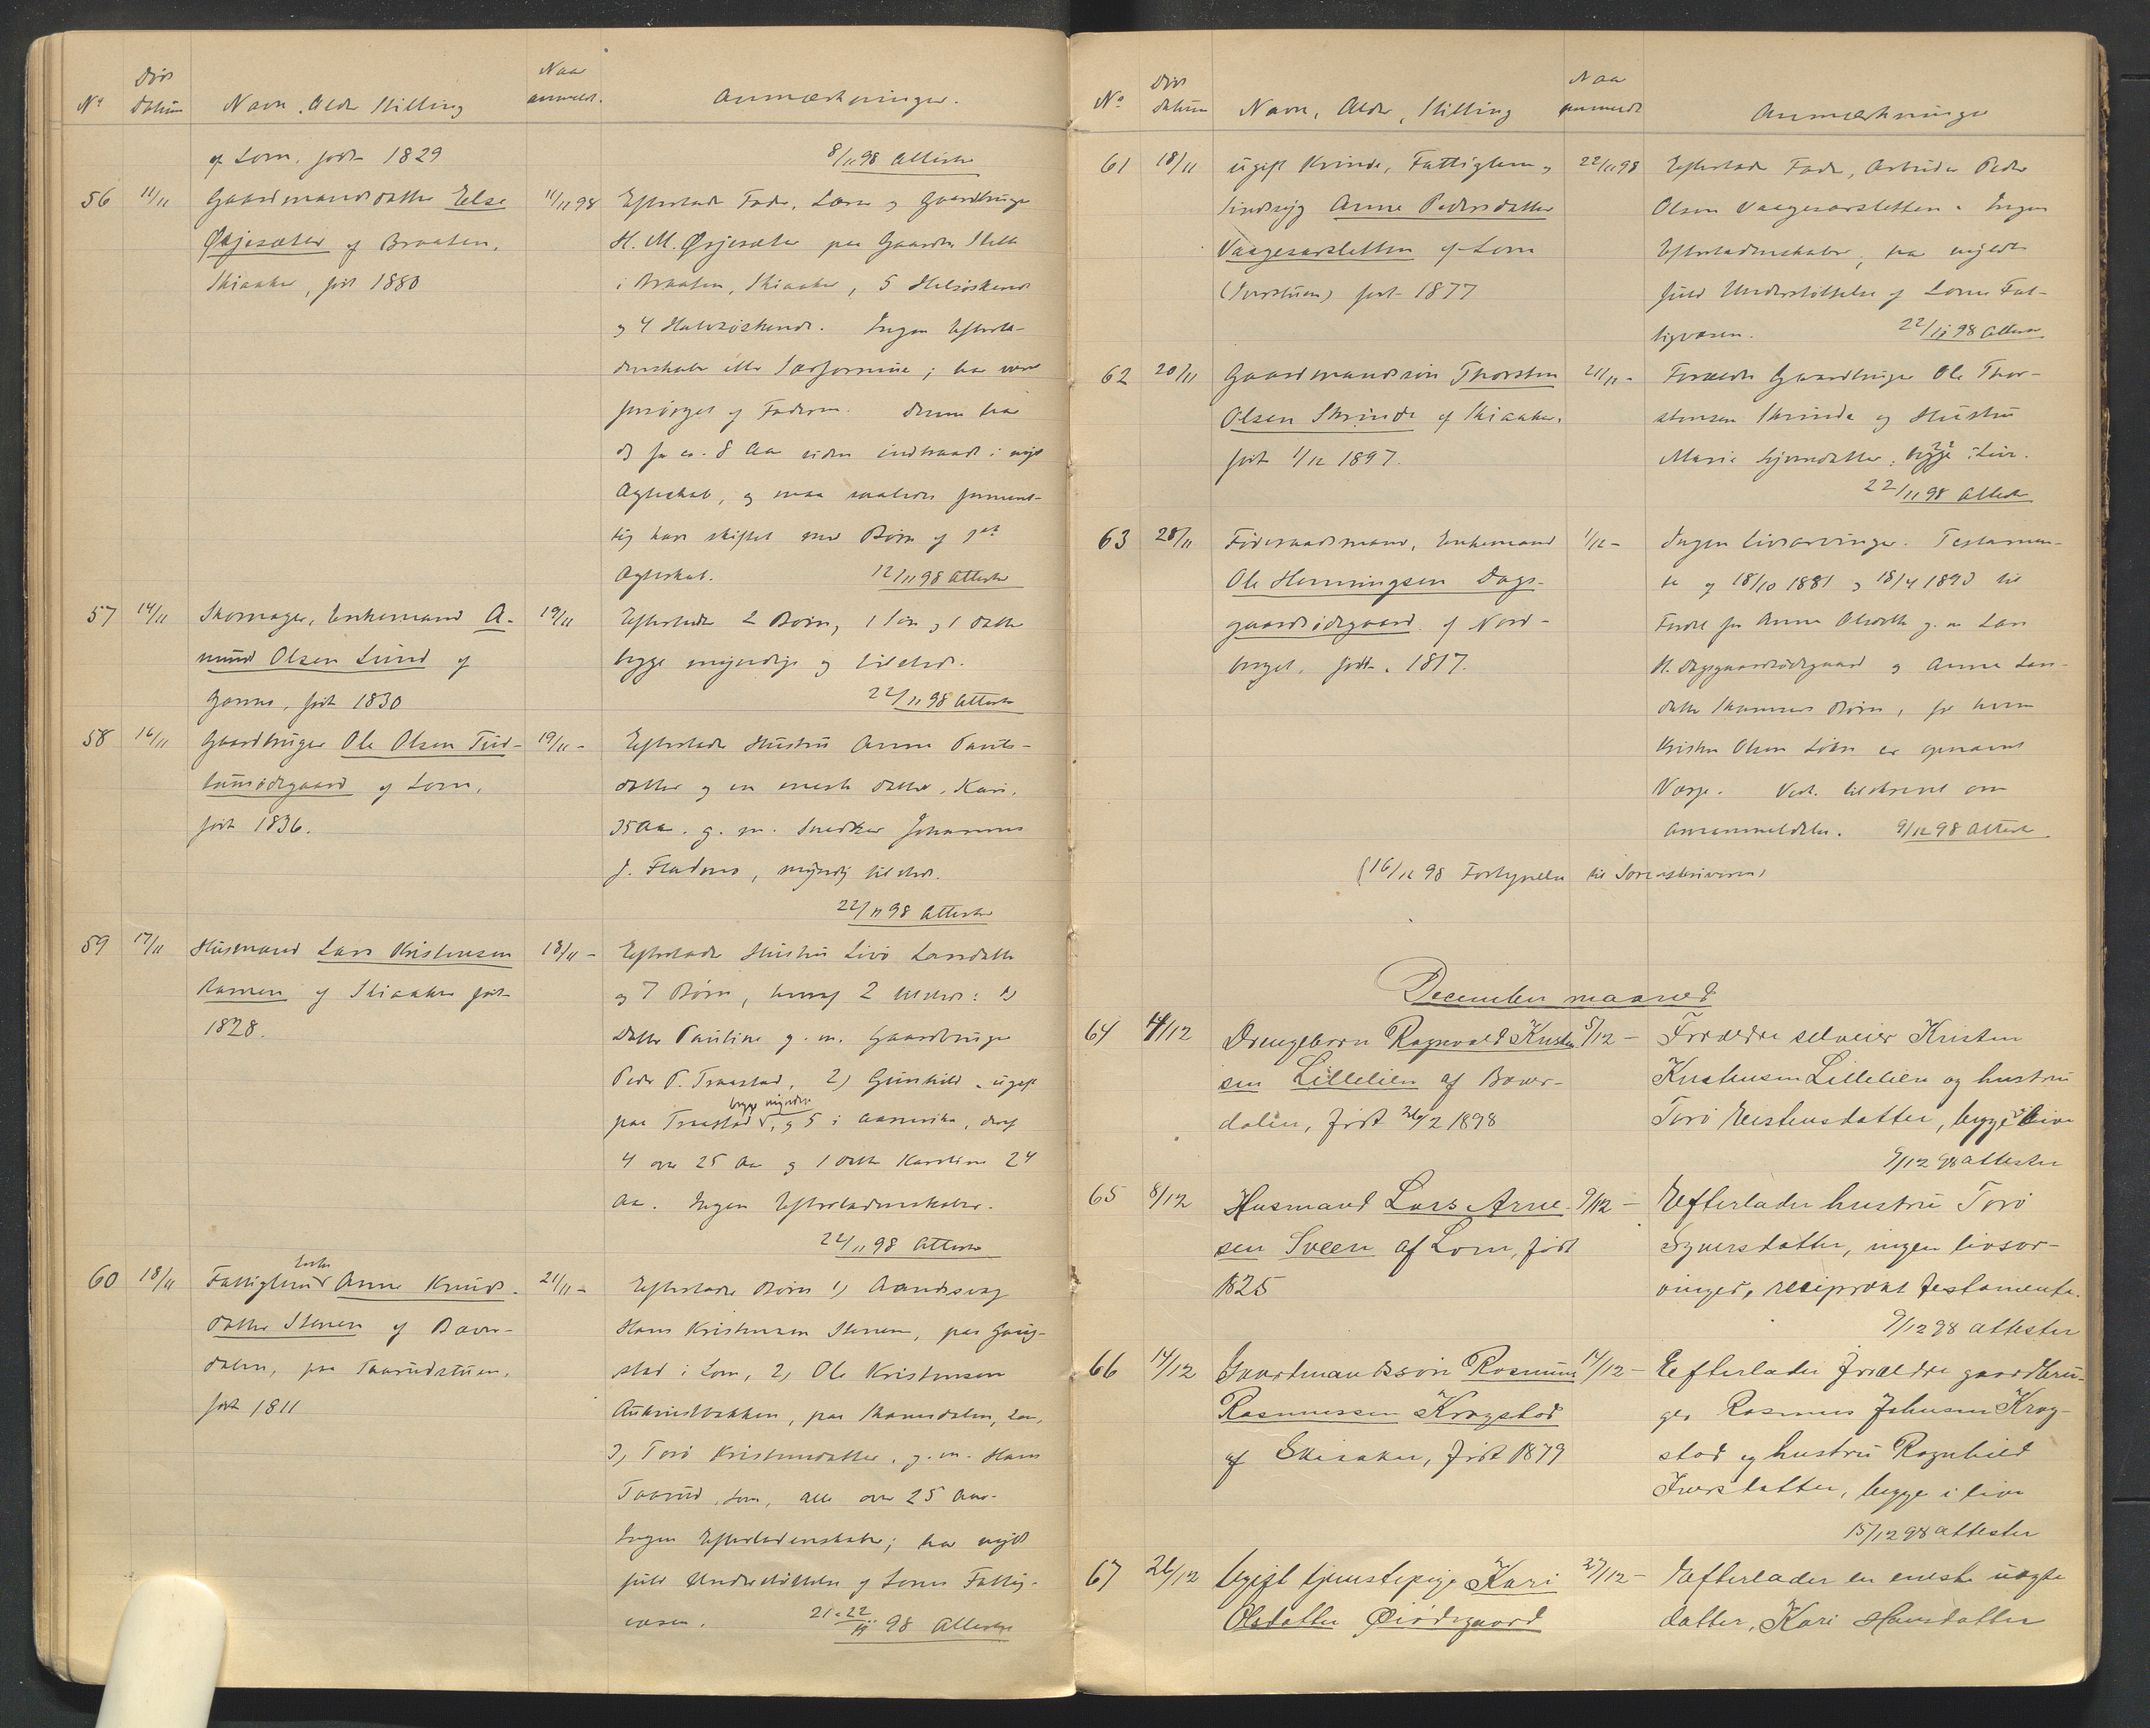 Døds Naar
No datum Navn, Alder Stilling anmeldt. Anmærkninger.
af Lom, født 1829 8/11 98 Attester
56 11/11 Gaardmandsdatter Else 11/11 98 Efterlader Fader, Lærer og Gaardbruger
Øyjesæter af Braaten, H. M. Øyjesæter paa Gaarden
Skiaaker, født 1880 i Braaten, Skiaaker, 5 Helsøskende
og 4 Halvsøskende. Ingen Efterla-
denskaber eller Særformue; har været
forsørget af Faderen. Denne har
for ca. 8 Aar siden indtraadt i nyt
Ægteskab, og maa saaledes forment-
lig have skiftet med Børn af 1ste
Ægteskab. 12/11 98 Attester
57 14/11 Skomager, Enkemand A- 19/11 Efterlader 2 Børn, 1 Søn og 1 Datter
mund Olsen Lund af begge myndige og tilstede.
Garmo, født 1830 22/11 98 Attester
58 16/11 Gaardbruger Ole Olsen 19/11 - Efterlader Hustru Anne Pauls-
af Lom, datter og en eneste Datter, Kari,
født 1836. 35 Aar. g. m. Snedker Johannes
J. , myndig tilstede.
22/11 98 Attester
59 17/11 Husmand Lars Kristensen 18/11 - Efterlader Hustru Livö Larsdatter
af Skiaaker født og 7 Børn, hvoraf 2 tilstede: 1)
1828. Datter Pauline g. m. Gaardbruger
Peder P. Traastad, 2) Gunhild, ugift
begge myndige
paa Traastad, og 5 i Amerika, deraf
4 over 25 Aar og 1 Datter Karoline 24
Aar. Ingen Efterladenskaber.
22/11 98 Attester
Enke
60 18/11 Fattiglem Anne Knuds- 21/11 - Efterlader Børn 1) Aandssvag
datter Stenen af Bæver- Hans Kristensen Stenen, paa Gaup-
dalen, paa Taarudstuen, stad i Lom, 2) Ole Kristensen
født 1811 , paa , Lom,
3) Torö Kristensdatter, g. m. Hans
Taarud, Lom, alle over 25 Aar.
Ingen Efterladenskaber; har nydt
fuld Understøttelse af Loms Fattig-
væsen. 21-22/11 98 Attester
Døds Naar
No datum Navn, Alder, Stilling anmeldt Anmærkninger
61 18/11 ugift Kvinde, Fattiglem og 22/11 98 Efterlader Fader, Arbeider Peder
Sindssyg Anne Pedersdatter Olsen Vaagesarsletten. Ingen
Vaagesarsletten af Lom Efterladenskaber; har nydt
født 1877 fuld Understøttelse af Loms Fat-
tigvæsen. 22/11 98 Attester
62 20/11 Gaardmandssøn Thorsten 21/11 - Forældre Gaardbruger Ole Thor-
Olsen Skrinde af Skiaaker, stensen Skrinde og Hustru
født 1/12 1897. Marie Syversdatter, begge i Live.
22/11 98 Attester
63 28/11 Føderaadsmand, Enkemand 1/12 - Ingen Livsarvinger. Testamen-
Ole Henningsen Dags- ter af 18/10 1881 og 18/4 1893 til
gaardsødegaard af Nord- Fordel for Anne Olsdatter g. m. Lars
berget, født 1817. H. Dagsgaardsødegaard og Anne Lars-
datter Børn, for hvem
Kristen Olsen er opnævnt
Værge. Vedk. tilskrevet om
Arveanmeldelse. 9/12 98 Attester
(16/12 98 Fornyelse til Sorenskriveren)
December maaned
64 4/12 Drengebarn Ragnvald Kristen 5/12 - Forældre selveier Kristen
sen Lillelien af Bæver- Kristensen Lillelien og hustru
dalen, født 26/2 1898 Torö Eistensdatter, begge i live
9/12 98 attester
65 8/12 Husmand Lars Arne- 9/12 - Efterlader hustru Torö
sen Sveen af Lom, født Syversdatter, ingen livsar-
1825 vinger, reciprokt testamente.
9/12 98 attester
66 14/12 Gaardmandssøn Rasmus 14/12 - Efterlader forældre gaardbru-
Rasmussen Krogstad ger Rasmus Johnsen Krog-
af Skiaaker, født 1879 stad og hustru Ragnhild
Iversdatter, begge i live
15/12 98 attester
67 26/12 Ugift tjenestepige Kari 27/12 - Efterlader en eneste uægte
Olsdatter Øiødegaard datter, Kari Hansdatter